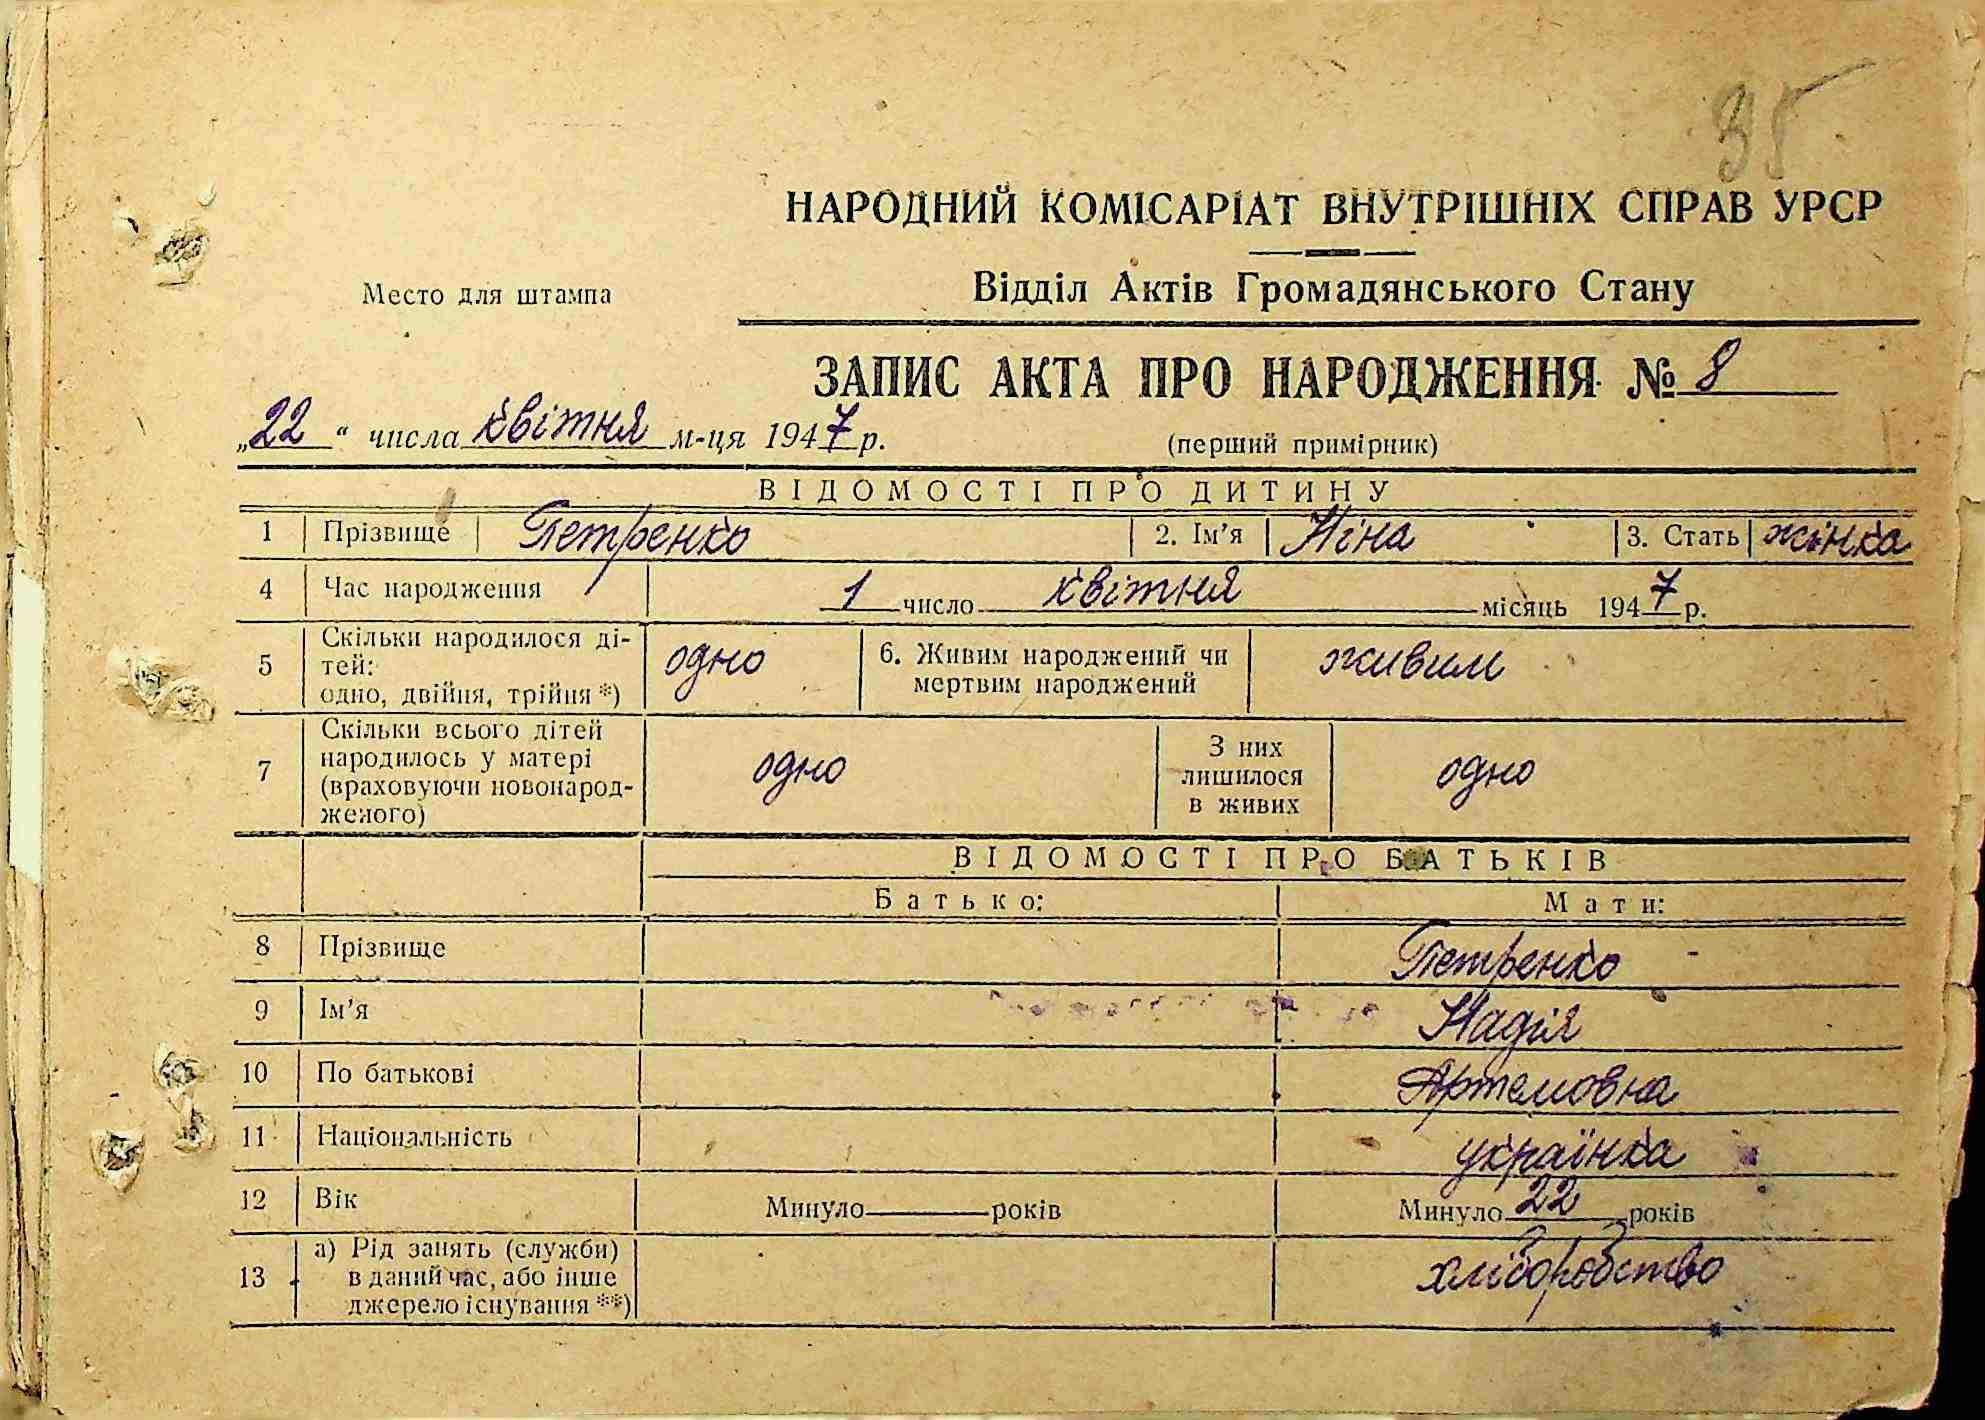 35
НАРОДНИЙ КОМІСАРІАТ ВНУТРІШНІХ СПРАВ УРСР
Место для штампа
Відділ Актів Громадянського Стану
ЗАПИС АКТА ПРО НАРОДЖЕННЯ № 8
„22“ числа квітня м-ця 1947 р.
(перший примірник)
ВІДОМОСТІ ПРО ДИТИНУ
1 Прізвище Петренко 2. Ім'я Ніна 3. Стать жінка
4 Час народження 1 число квітня місяць 1947 р.
5 Скільки народилося ді-
тей:
одно, двійня, трійня *) одно 6. Живим народжений чи
мертвим народжений живим
7 Скільки всього дітей
народилось у матері
(враховуючи новонарод-
женого) одно З них
лишилося
в живих одно
ВІДОМОСТІ ПРО БАТЬКІВ
Батько: Мати:
8 Прізвище Петренко
9 Ім'я Надія
10 По батькові Артемовна
11 Національність українка
12 Вік Минуло років Минуло 22 років
13 а) Рід занять (служби)
в даний час, або інше
джерело існування **) хліборобство